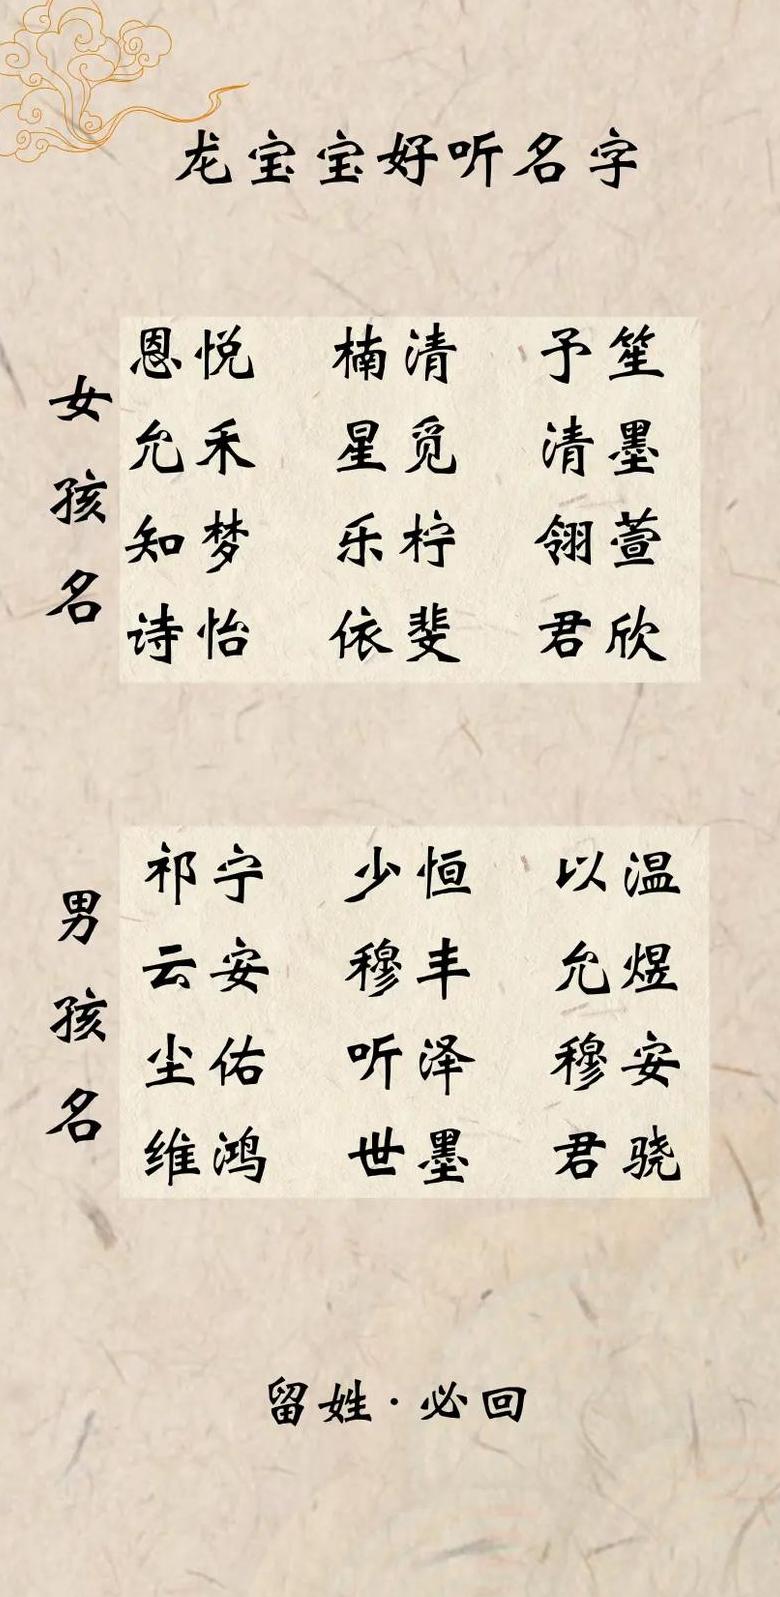 龙宝宝好听名字
女孩名
恩悦 楠清 予笙
允禾 星觅 清墨
知梦 乐柠 翎萱
诗怡 依斐 君欣
男孩名
祁宁 少恒 以温
云安 穆丰 允煜
尘佑 听泽 穆安
维鸿 世墨 君骁
留姓·必回